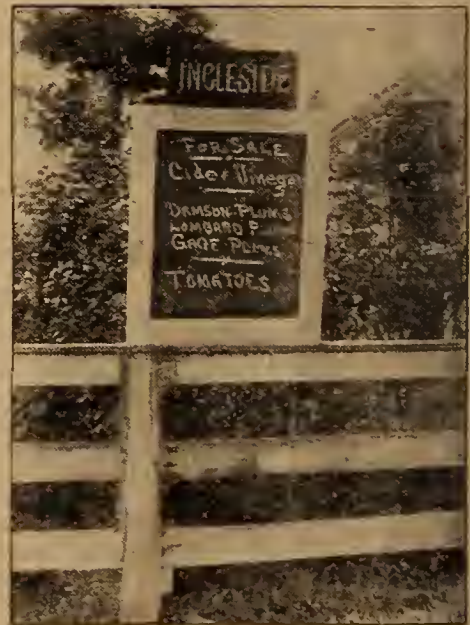 INGLESIDE
FOR SALE
Cider Vinegar
DAMSON PLUMS
LOMBARD
GAGE PLUMS
TOMATOES